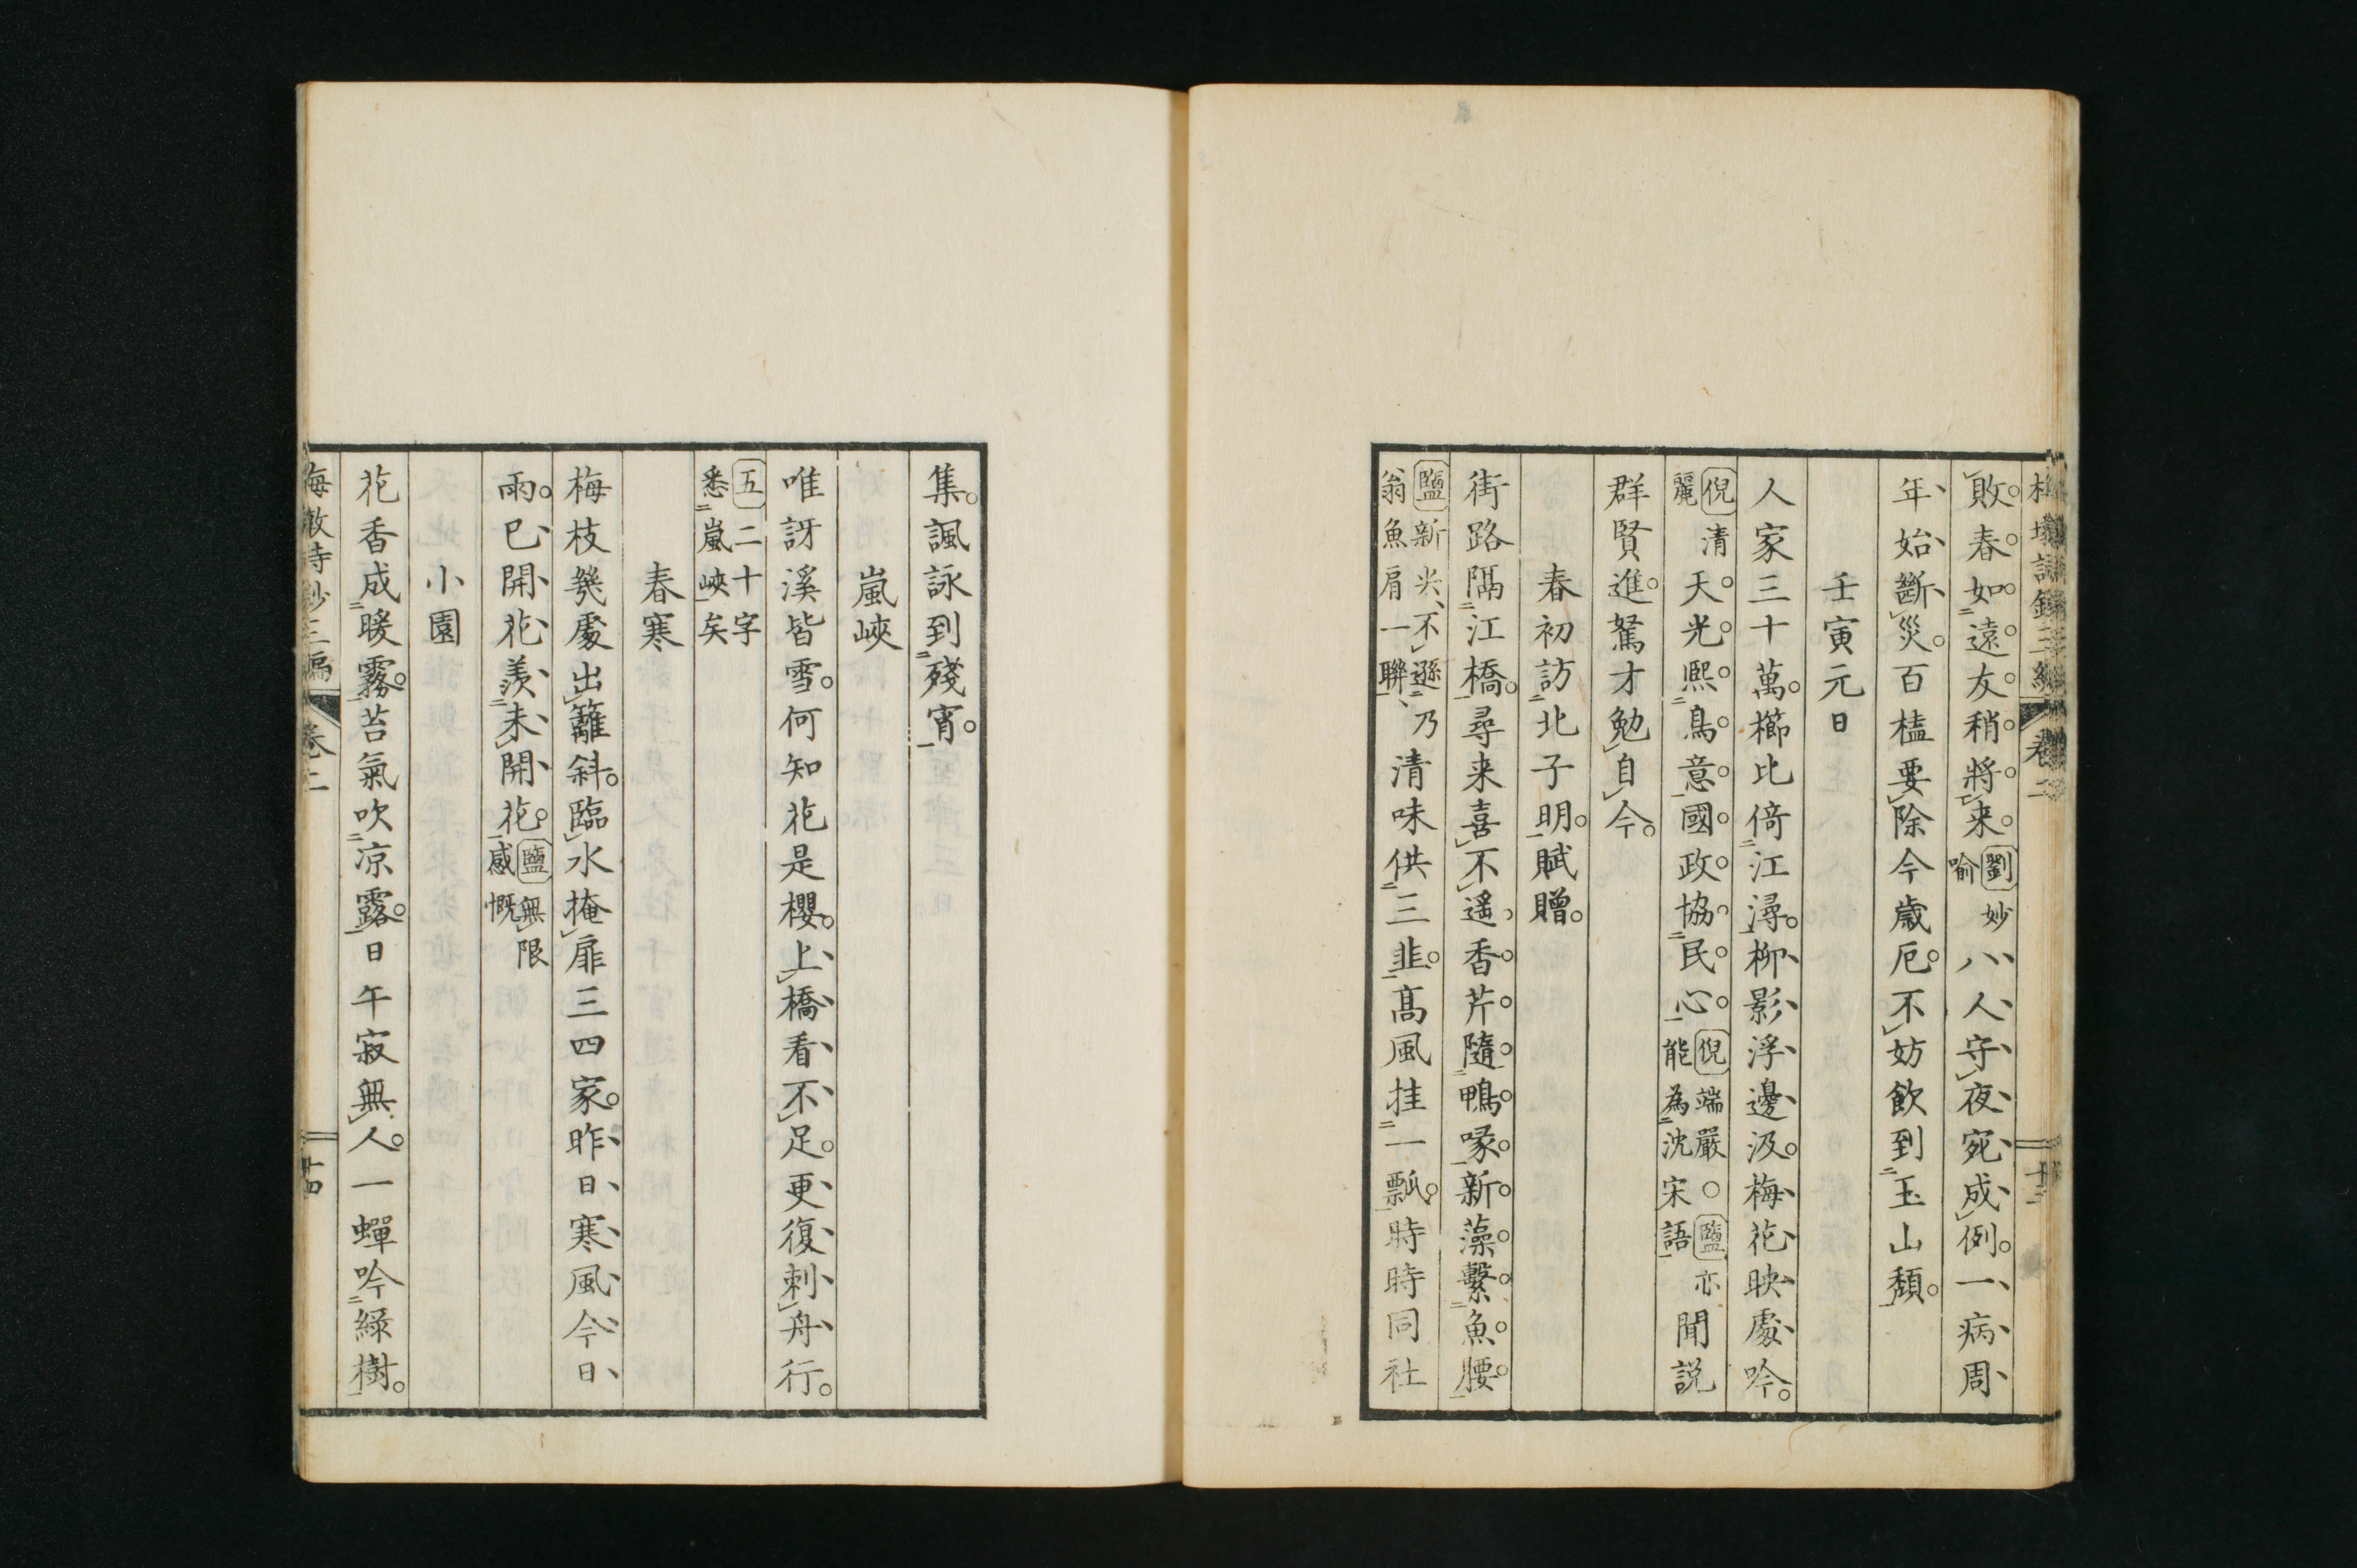 敗春如遠友稍將来劉妙喻八人守夜宛成例一病周
年始斷災百榼要除今歲厄不妨飲到玉山頽
壬寅元日
人家三十萬櫛比倚江潯柳影浮邊汲梅花映處吟
倪清麗天光熙鳥意國政協民心倪端嚴能為沈宋語○鹽亦聞説
群賢進駑才勉自今
春初訪北子明賦贈
街路隔江橋尋来喜不遥香芹隨鴨喙新藻繫魚腰
鹽新尖不遜乃翁魚肩一聯清味供三韭髙風挂一瓢時時同社
集諷詠到殘宵
嵐峽
唯訝溪皆雪何知花是櫻上橋看不足更復刺舟行
五二十字悉嵐峽矣
春寒
梅枝幾處出籬斜臨水掩扉三四家昨日寒風今日
雨已開花羨未開花鹽無限感慨
小園
花香成暖霧苔氣吹凉露日午寂無人一蟬吟緑樹
卷二
十四